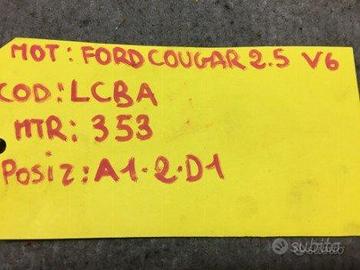 MOT: FORD COUGAR 2.5 V6
COD: LCBA
MTR: 353
Posiz: A1-2-D1
subito